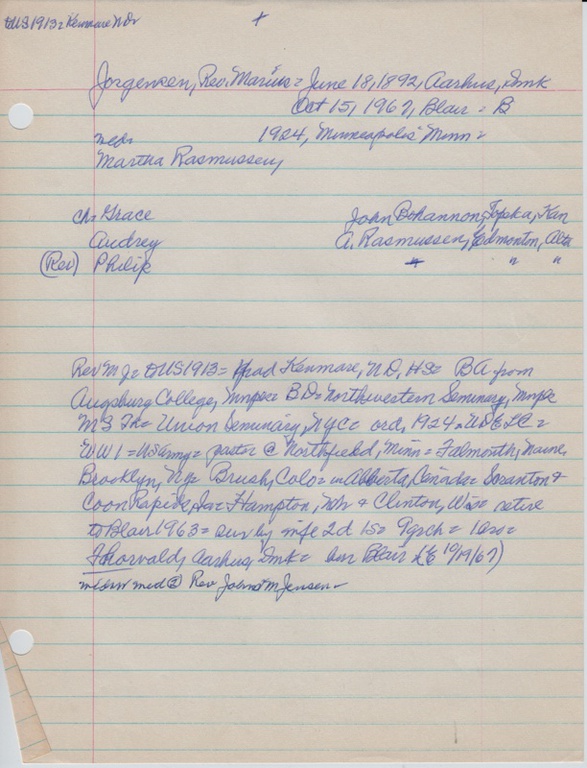 to US 1913 = Kenmare ND =
+
Jorgensen, Rev. Marius = June 18, 1892, Aarhus, Dmk
Oct 15, 1967, Blair = B
med = 1924, Minneapolis, Minn =
Martha Rasmussen,
Ch = Grace John Bohannon, Topeka, Kan
Audrey A. Rasmussen, Edmonton, Alta
(Rev) Philip " " "
Rev M J = to US 1913 = grad Kenmare, ND, HS = BA from
Augsburg College, Mnpls = BD = Northwestern Seminary, Mnpls
M S Th = Union Seminary, NYC = ord, 1924 = UDELC =
WW1 = US army = pastor @ Northfield, Minn = Falmouth, Maine,
Brooklyn, Ny = Brush, Colo = in Alberta, Canada = Scranton &
Coon Rapids, Ia = Hampton, Nbr & Clinton, Wis = retire
to Blair 1963 = sur by wife 2d 1s = 9grch = 1 bro =
Thorvald, Aarhus, Dmk = bur Blair (E 10/19/67)
widow med @ Rev Johns M Jensen -